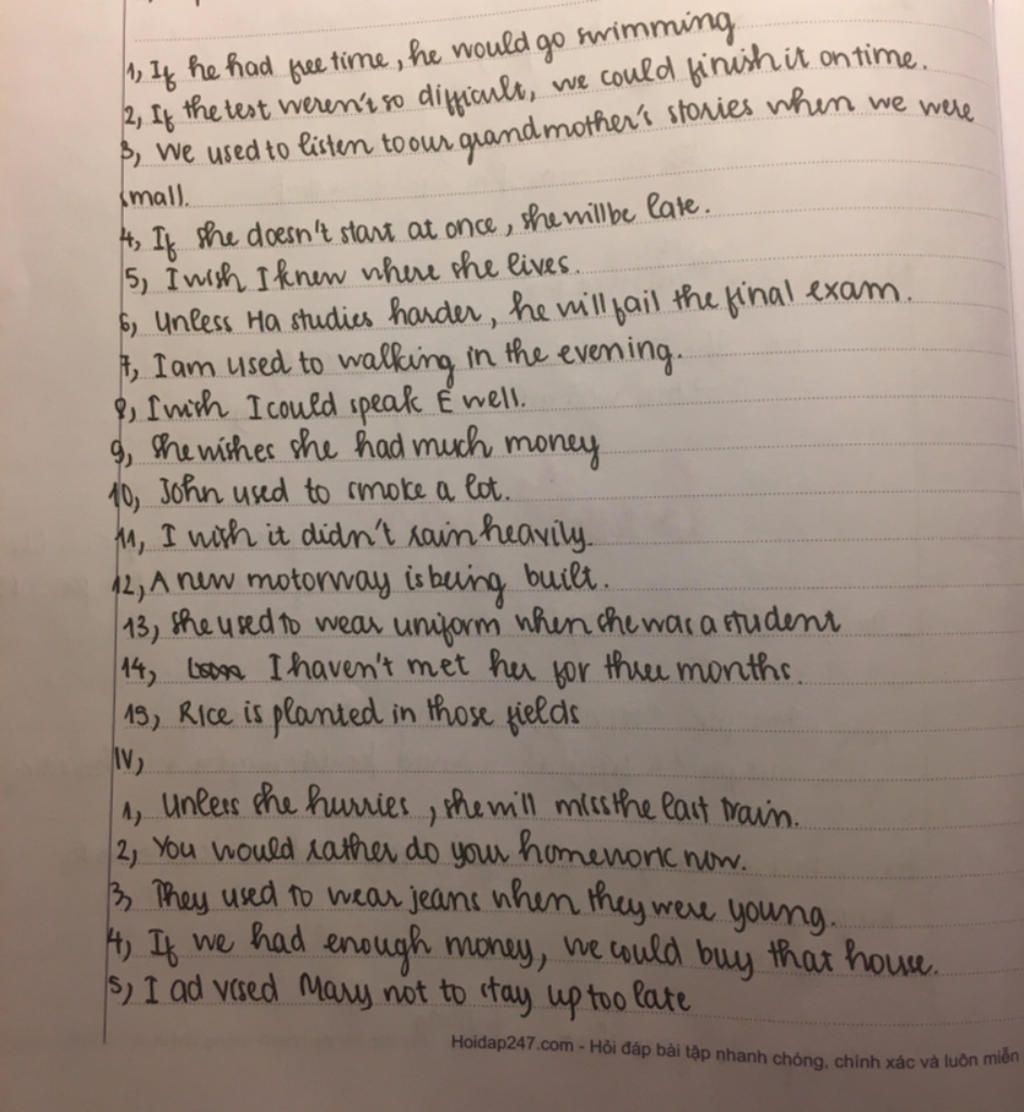 1, If he had free time, he would go swimming
2, If the test weren't so difficult, we could finish it on time.
3, We used to listen to our grandmother's stories when we were
small.
4, If she doesn't start at once, she will be late.
5, I wish I knew where she lives.
6, Unless Ha studies harder, he will fail the final exam.
7, I am used to walking in the evening.
8, I wish I could speak E well.
9, she wishes she had much money
10, John used to smoke a lot.
11, I wish it didn't rain heavily.
12, A new motorway is being built.
13, she used to wear uniform when she was a student
14, I haven't met her for three months.
15, Rice is planted in those fields
IV,
1, Unless she hurries, she will miss the last train.
2, You would rather do your homework now.
3, They used to wear jeans when they were young.
4, If we had enough money, we could buy that house.
5, I advised Mary not to stay up too late
Hoidap247.com - Hỏi đáp bài tập nhanh chóng, chính xác và luôn miễn